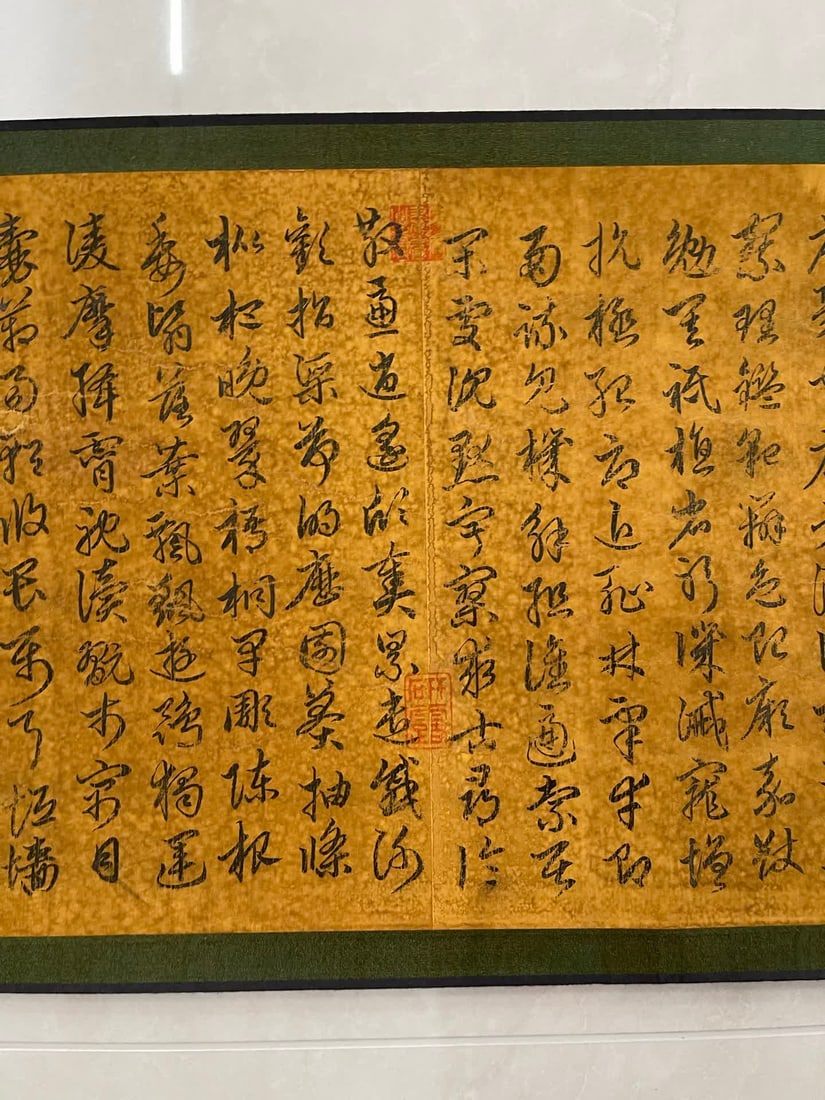 察理鑑貌辨色貽厥嘉猷
勉其祗植省躬譏誡寵增
抗極殆辱近恥林皋幸即
兩疏見機解組誰逼索居
閑處沈默寂寥求古尋論
散慮逍遙欣奏累遣慼謝
歡招渠荷的歷園莽抽條
枇杷晚翠梧桐早彫陳根
委翳落葉飄颻遊鵾獨運
凌摩絳霄耽讀翫市寓目
囊箱易輶攸畏屬耳垣墻